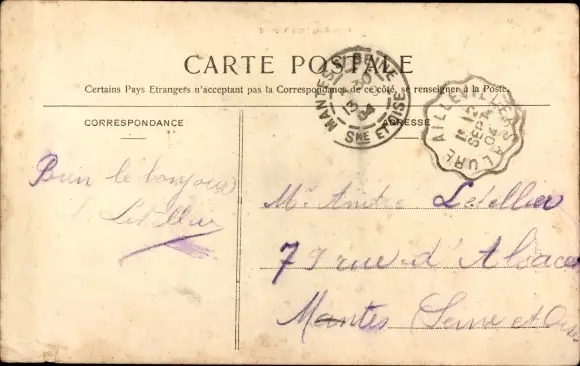 CARTE POSTALE
Certains Pays Etrangers n'acceptant pas la Correspondance de ce côté, se renseigner à la Poste.
CORRESPONDANCE
ADRESSE
Bien le bonjour
Letellier
Mr André Letellier
79 rue d'Alsace
Mantes Seine et Oise
MANTES
SNE ET OISE
04
AILLEVILLERS A LURE
SEPT
04